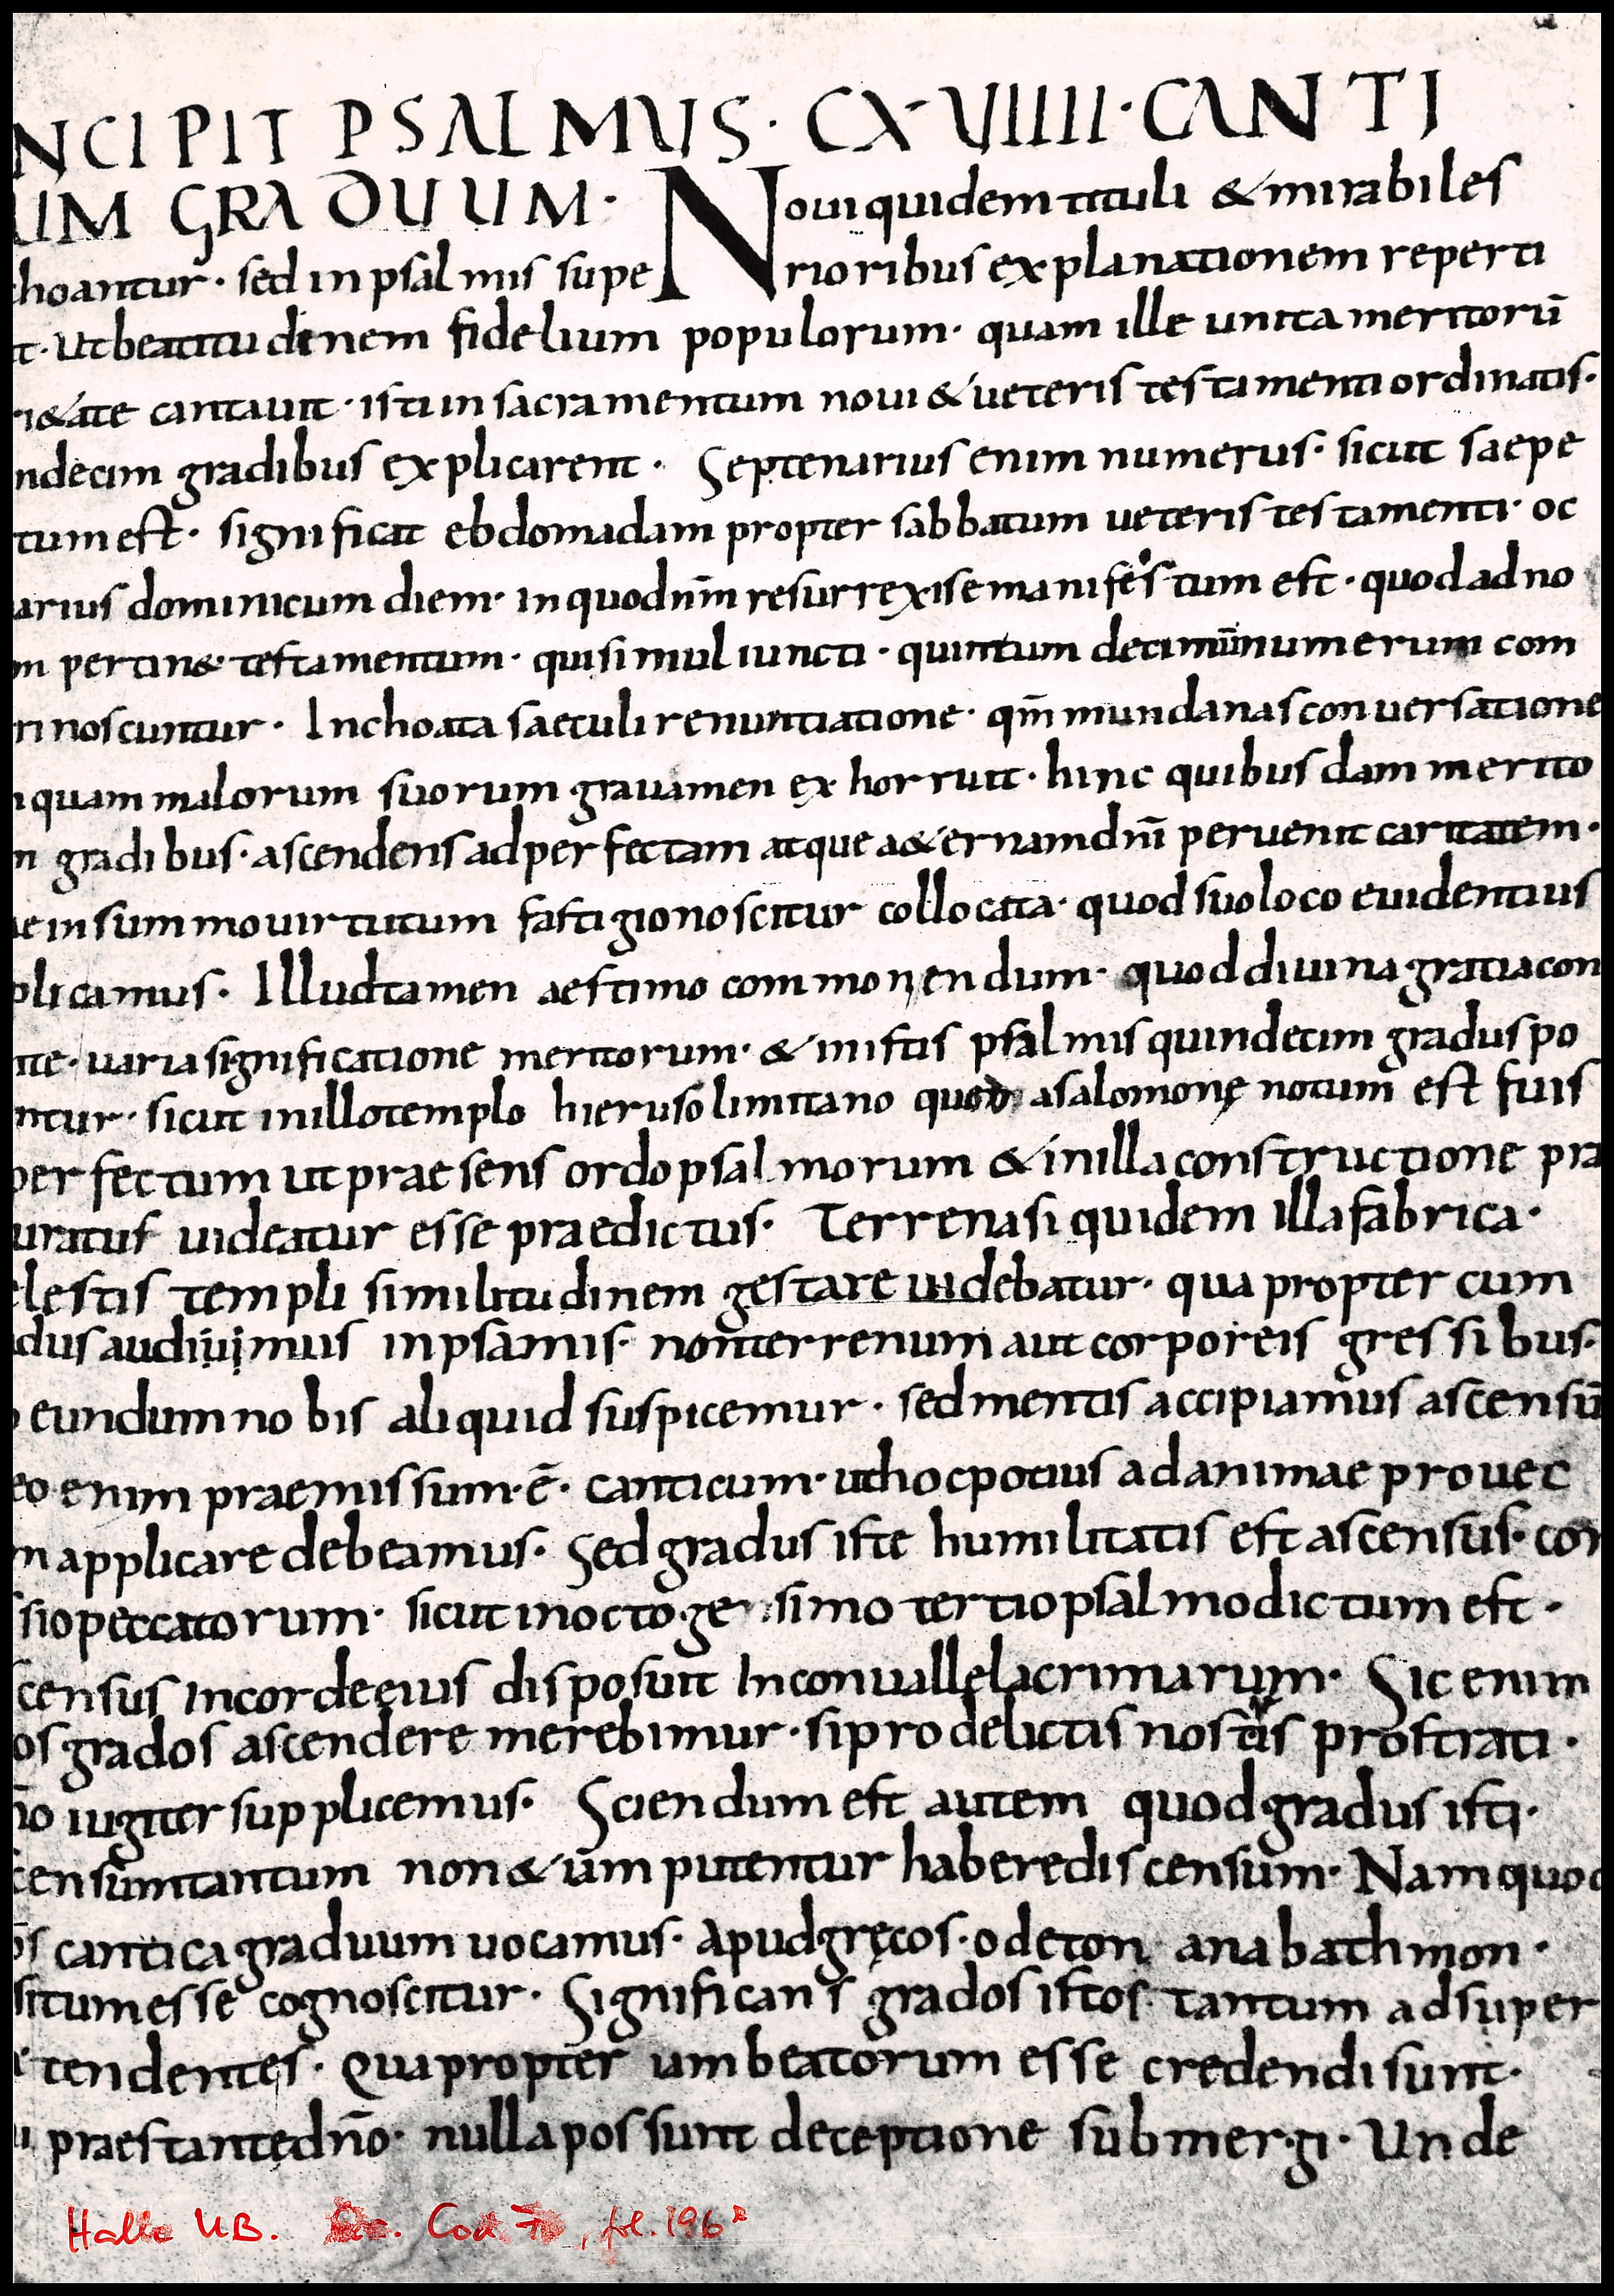 NCIPIT PSALMUS· CX·VIIIII·CANTI
UM GRADUUM· Noui quidem tituli & mirabiles
choantur· sed in psalmis supe rioribus explanationem reperti
t· Ut beatitudinem fidelium populorum· quam ille unita meritorū
ri&ate cantauit· isti in sacramentum noui & ueteris testamenti ordinatis·
ndecim gradibus explicarent· Septenarius enim numerus· sicut saepe
tum est· significat ebdomadam propter sabbatum ueteris testamenti· oc
arius dominicum diem· in quo dnm̄ resurrexise manifestum est· quod ad no
m pertin& testamentum· qui simul iuncti· quintum decimū numerum com
ri noscuntur· Inchoata saeculi renuntiatione· qm̄ mundanas conuersatione
quam malorum suorum grauamen exhorruit· hinc quibusdam merito
m gradibus· ascendens ad perfectam atque a&ernam dnī peruenit caritatem·
ae in summo uirtutum fastigio noscitur collocata· quod suo loco euidentius
plicamus· Illud tamen aestimo commonendum· quod diuina gratia con
nte· uaria significatione meritorum· & in istis psalmis quindecim gradus po
ntur· sicut in illo templo hierusolimitano quod a salomonę notum est fuis
perfectum ut praesens ordo psalmorum & in illa constructione pra
uratus uideatur esse praedictus· Terrena siquidem illa fabrica·
elestis templi similitudinem gestare uidebatur· quapropter cum
dus audiuimus in psamis· non terrenum aut corporeis gressibus·
eundum nobis aliquid suspicemur· sed mentis accipiamus ascensū
eo enim praemissum· ē· canticum· ut hoc potius ad animae prouec
m applicare debeamus· Sed gradus iste humilitatis est ascensus· con
sio peccatorum· sicut in octogensimo tertio psalmo dictum est·
scensus in corde eius disposuit In conualle lacrimarum· Sic enim
os grados ascendere merebimur· si pro delictis nostris prostrati·
no iugiter supplicemus· Sciendum est autem quod gradus isti·
censum tantum non & iām putentur habere discensum· Nam quod
os cantica graduum uocamus· apud gręcos· odeton anabathmon·
situm esse cognoscitur· Significans grados istos tantum ad super
tendentes· Quapropter iam beatorum esse credendi sunt·
praestantę dnō· nulla possunt deceptione submergi· Unde
Halle UB. Cod , fol. 196ʳ